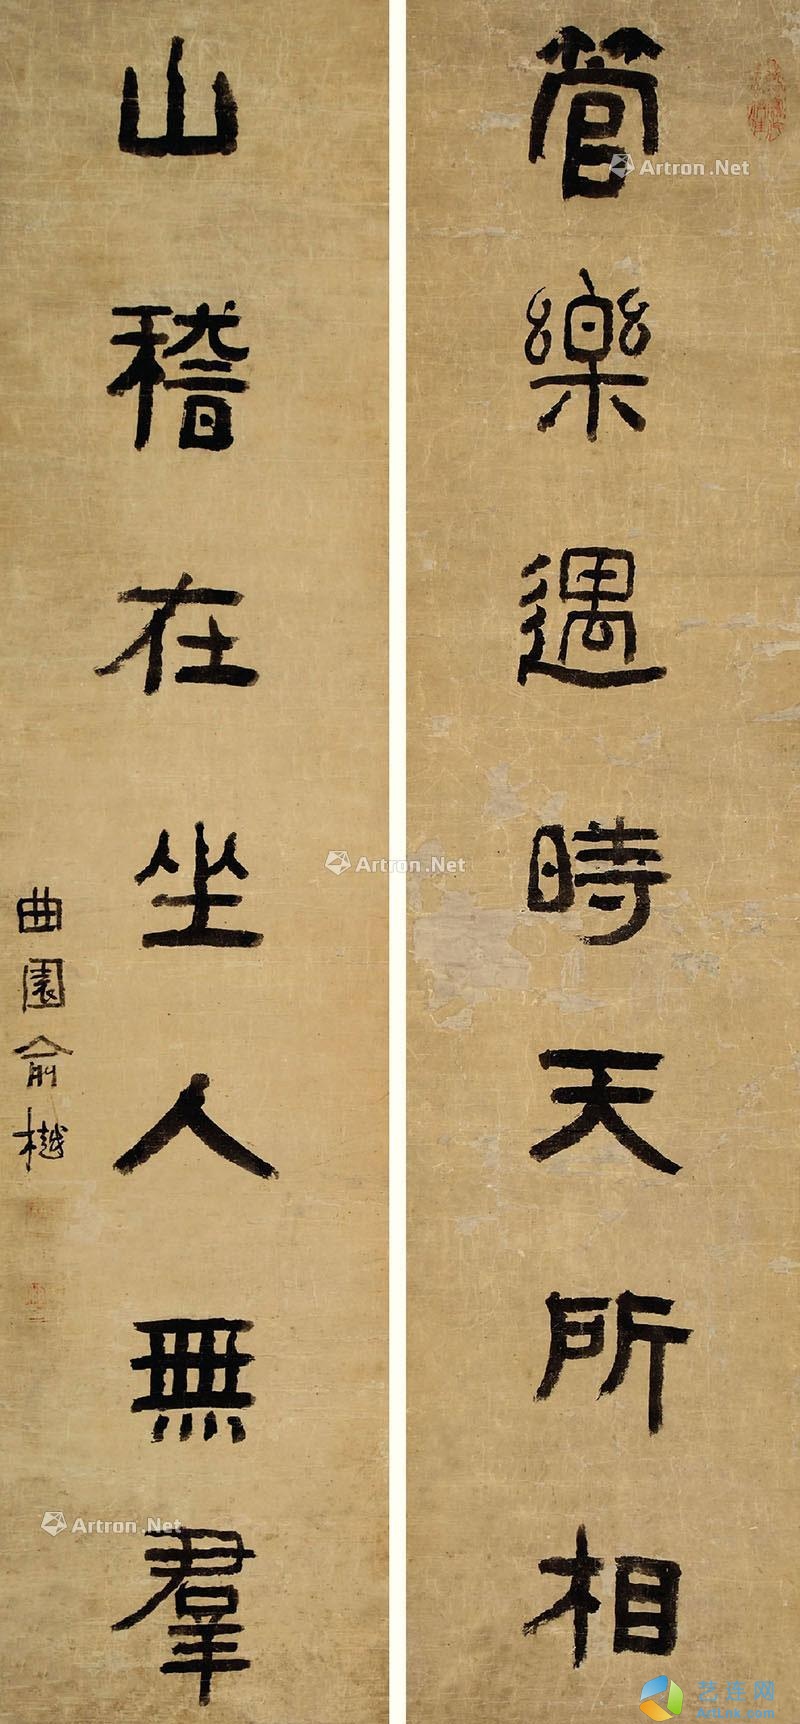 管樂遇時天所相
山稽在坐人無羣
曲園俞樾
Artron.Net
Artron.Net
Artron.Net